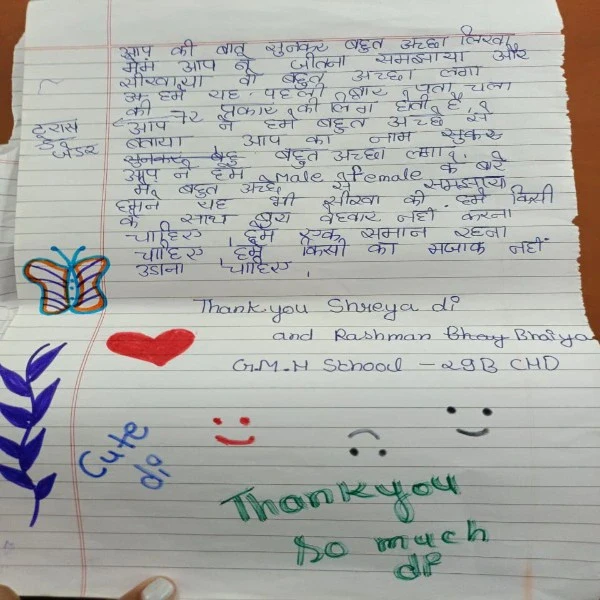 आप की बातें सुनकर बहुत अच्छा लिखा
मेम आप ने जीतना समझाया और
सीखाया वो बहुत अच्छा लगा
हमें यह पहली बार पता चला
की 72 प्रकार की लिंग होती है,
ट्रांस
जेंडर
आप ने हमें बहुत अच्छे से
बताया आप का नाम सुकर
सुनकर बहु बहुत अच्छा लगा
आप ने हमें Male Female के बारे
में बहुत अच्छे से समझाया
हमने यह भी सीखा की हमें किसी
के साथ बुरा वेहवार नहीं करना
चाहिए, हमें एक समान रहना
चाहिए हमें किसी का मजाक नहीं
उड़ाना चाहिए,
Thankyou Shreya di
and Rashman Bhay Bhaiya
G.M.H School - 29B CHD
Cute
di
Thankyou
so much
di